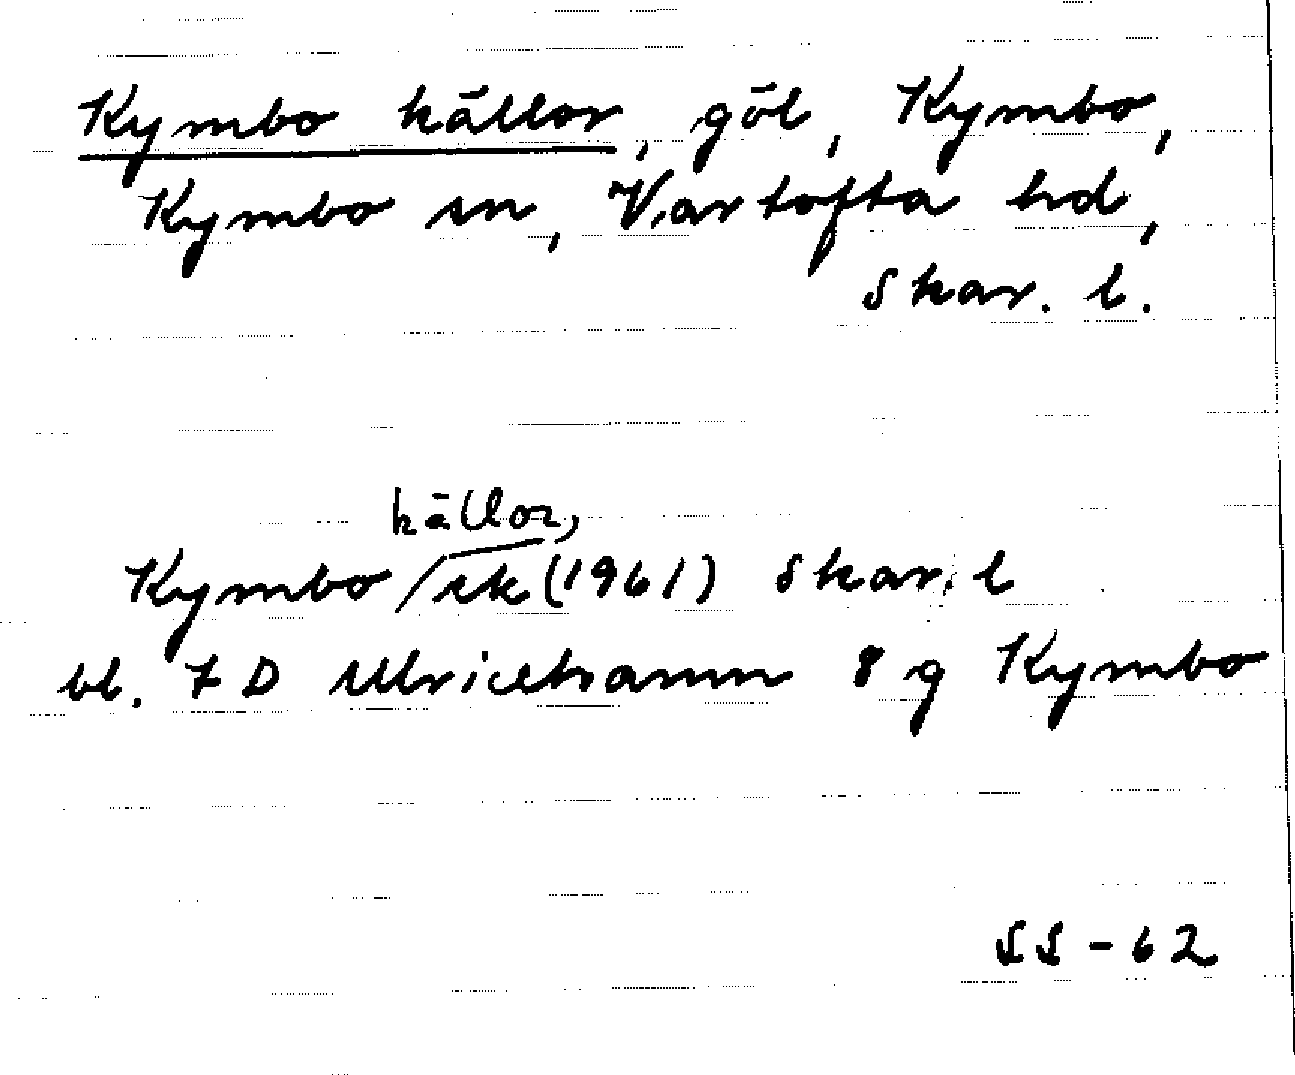 Kymbo källor, göl, Kymbo,
Kymbo sn, Vartofta hd,
Skar. l.
källor,
Kymbo /ek (1961) Skar. l
bl. 7 D Ulricehamn 8 g Kymbo
SS - 62